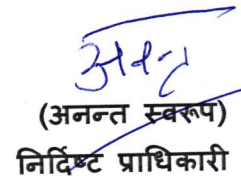 अनन्त
(अनन्त स्वरूप)
निर्दिष्ट प्राधिकारी